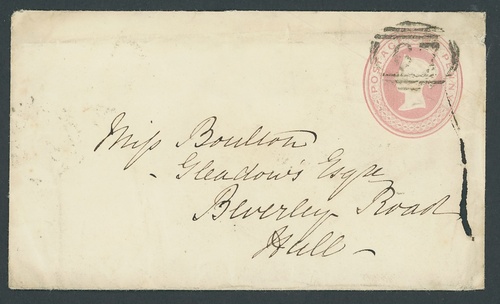 POSTAGE PENNY
Miss Boulton
Gleadow's Esqre
Beverley Road
Hull